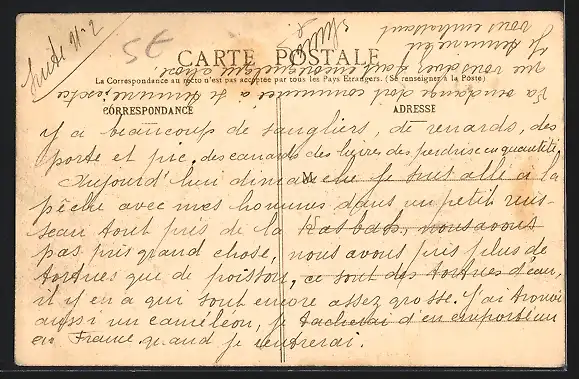 Suite N-2
CARTE POSTALE
La Correspondance au recto n'est pas acceptée par tous les Pays Etrangers. (Se renseigner à la Poste)
CORRESPONDANCE
ADRESSE
M
y a beaucoup de sangliers, de renards, des
porte et pic, des canards des lièvres des perdrise en quantité.
Aujourd'hui dimanche je suis allé à la
pêche avec mes hommes dans un petit ruis-
seau tout près de la Kasbah, nous avons
pas pris grand chose, nous avons pris plus de
tortues que de poisson, ce sont des tortues d'eau,
il y en a qui sont encore assez grosse. J'ai trouvé
aussi un caméléon, je tacherai d'en emporté un
en France quand je rentrerai.
La vendange doit commencer à se terminer, estce
que vous avez fait encore quelque chose.
Je termine en
vous embrassant